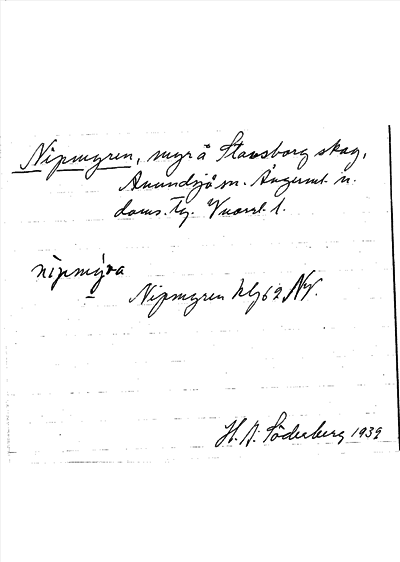 Nipmyren, myr å Stavsborg skog,
Anundsjö sn. Ångerml. n.
doms. tg. V
nipmýra
Nipmyren hbj 62 NV.
H. A. Söderberg 1939